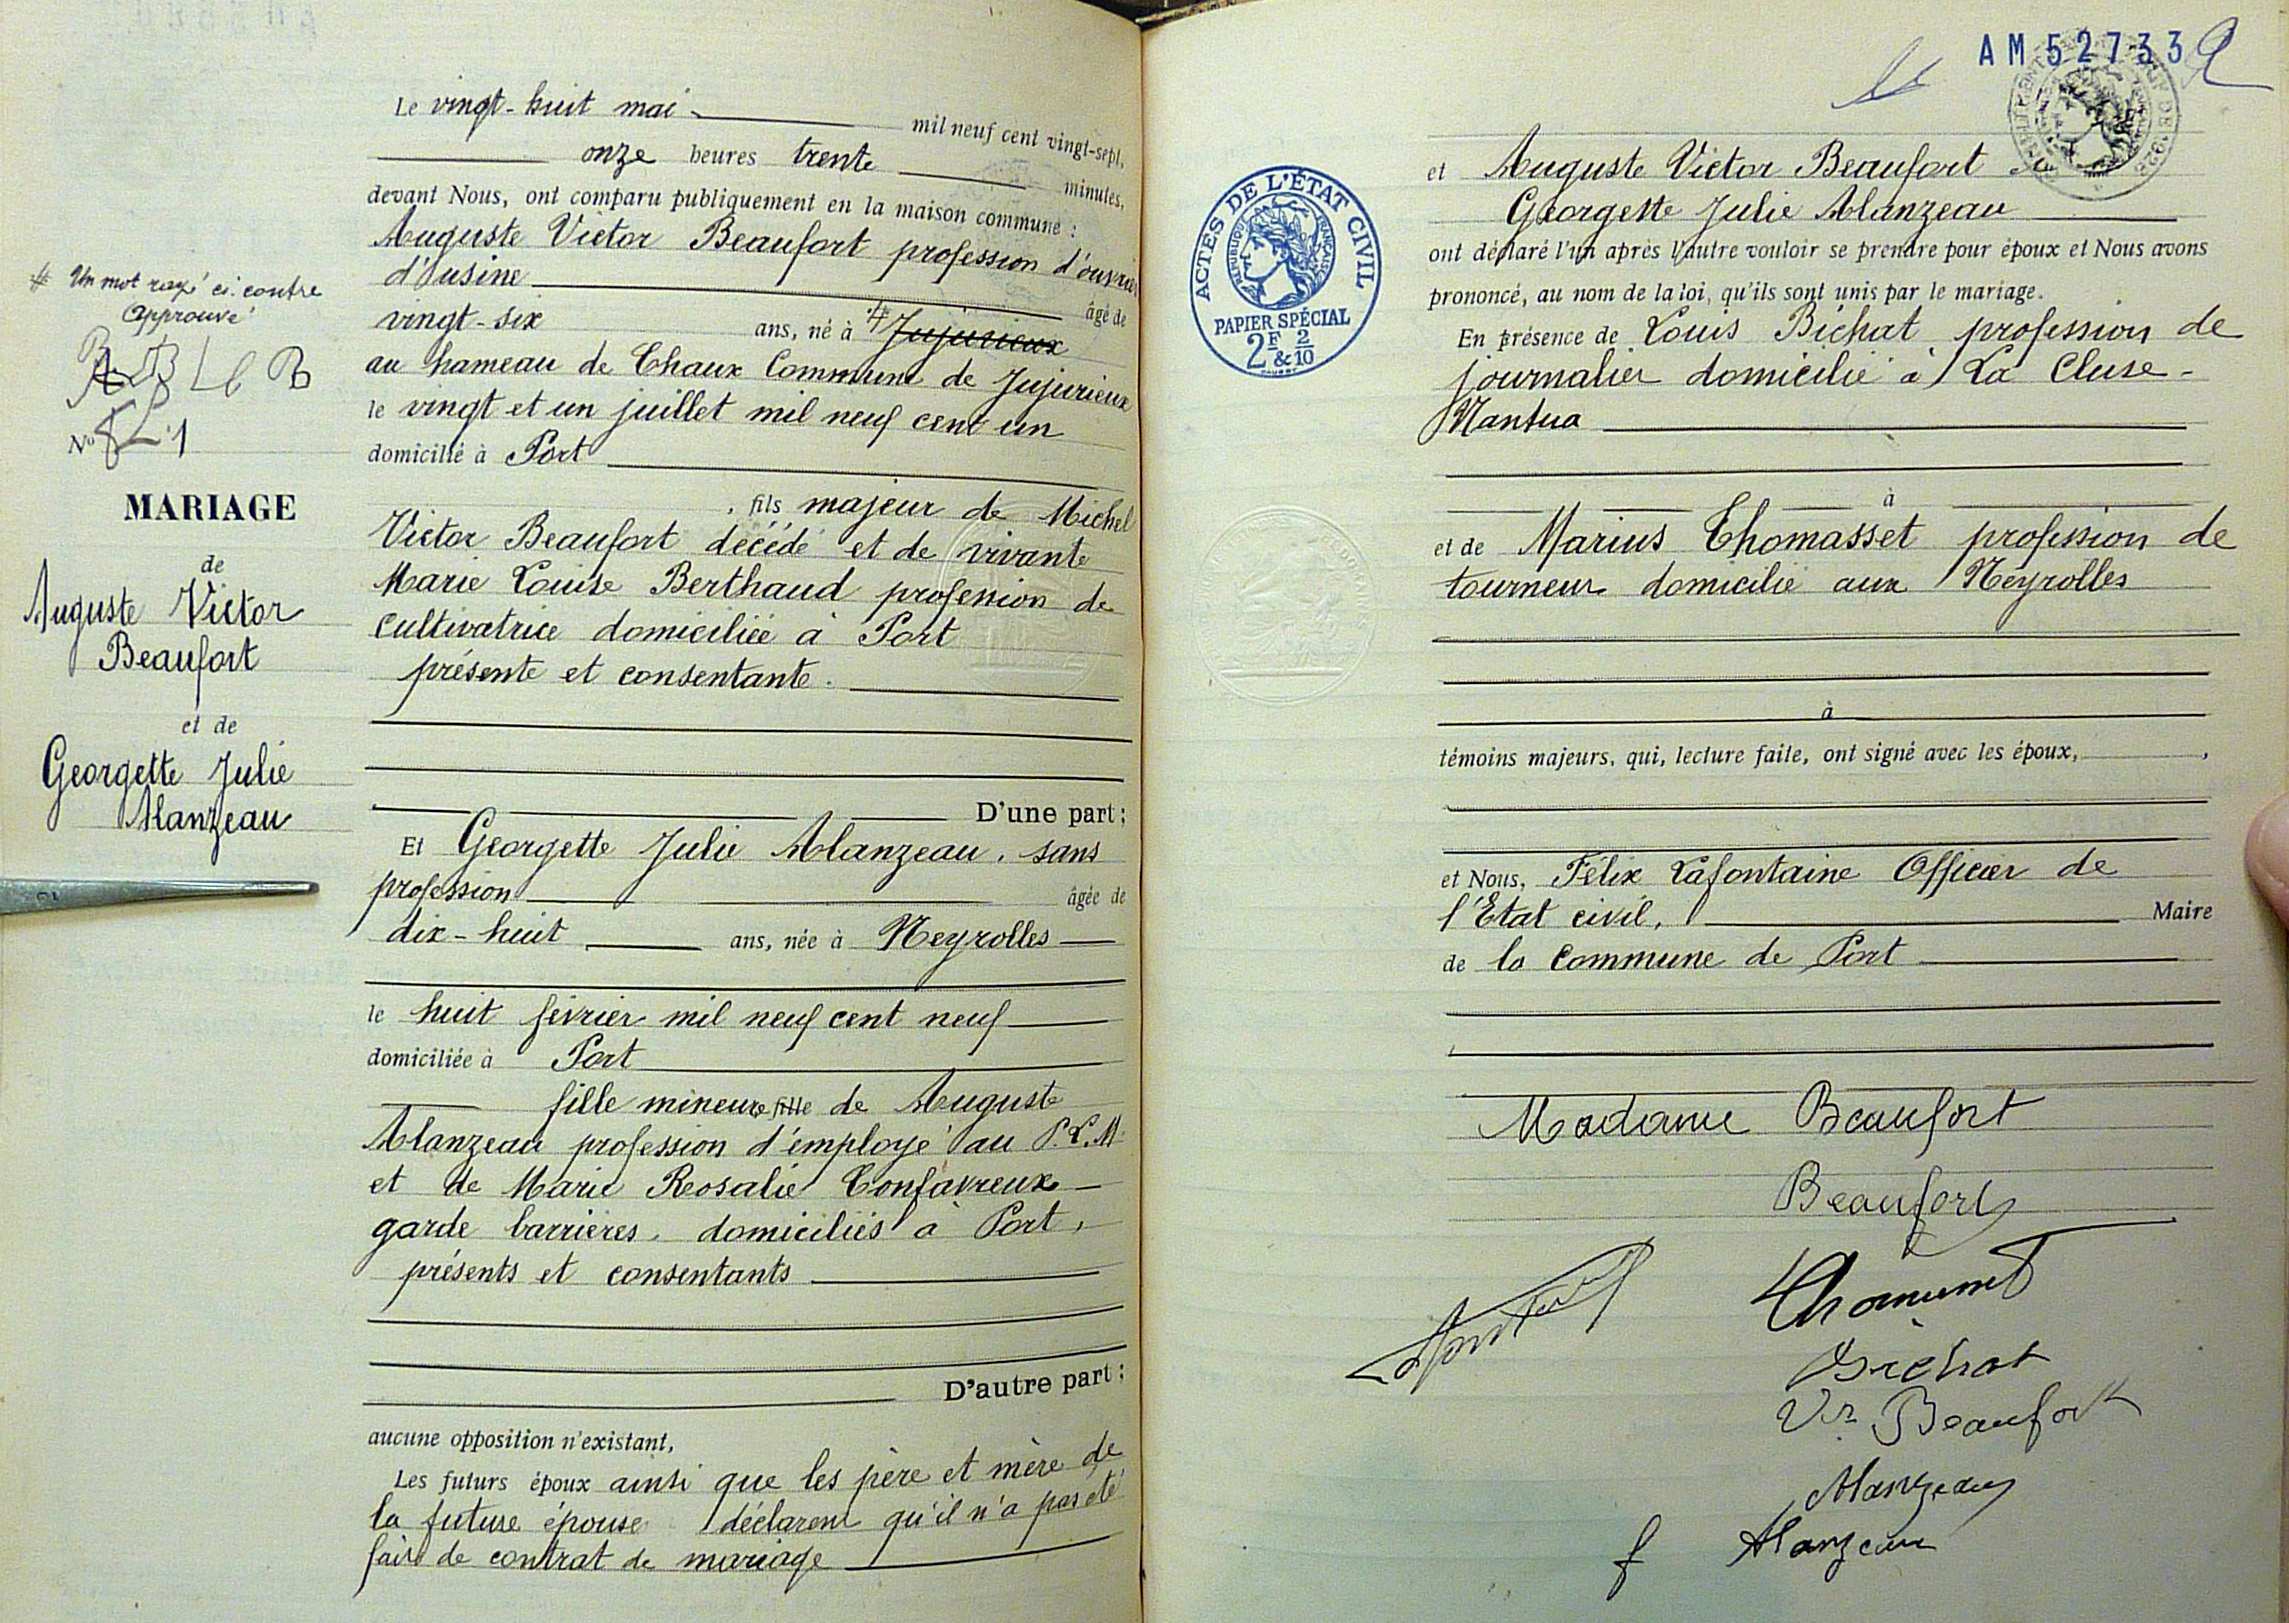 Le vingt-huit mai mil neuf cent vingt-sept,
onze heures trente minutes,
devant Nous, ont comparu publiquement en la maison commune :
Auguste Victor Beaufort profession d'ouvrier
d'usine âgé de
vingt-six ans, né à # Jujurieux
au hameau de Chaux Commune de Jujurieux
le vingt et un juillet mil neuf cent un
domicilié à Port
, fils majeur de Michel
Victor Beaufort décédé et de vivante
Marie Louise Berthaud profession de
cultivatrice domiciliée à Port
présente et consentante.
D'une part ;
Et Georgette Julie Alanzeau, sans
profession âgée de
dix-huit ans, née à Neyrolles
le huit février mil neuf cent neuf
domiciliée à Port
fille mineure fille de Auguste
Alanzeau profession d'employé au P.L.M
et de Marie Rosalie Confavreux
garde barrières, domiciliés à Port,
présents et consentants
D'autre part ;
aucune opposition n'existant,
Les futurs époux ainsi que les père et mère de
la future épouse déclarent qu'il n'a pas été
fait de contrat de mariage
# Un mot rayé ci-contre
approuvé
No
MARIAGE
de
Auguste Victor
Beaufort
et de
Georgette Julie
Alanzeau
AM 527332
et Auguste Victor Beaufort et
Georgette Julie Alanzeau
ont déclaré l'un après l'autre vouloir se prendre pour époux et Nous avons
prononcé, au nom de la loi, qu'ils sont unis par le mariage.
En présence de Louis Bichat profession de
journalier domicilié à La Cluse-
Nantua
à
et de Marius Thomasset profession de
tourneur domicilié aux Neyrolles
à
témoins majeurs, qui, lecture faite, ont signé avec les époux, ,
et Nous, Félix Lafontaine Officier de
l'Etat civil, Maire
de la commune de Port
ACTES DE L'ÉTAT CIVIL
RÉPUBLIQUE FRANÇAISE
PAPIER SPÉCIAL
2F & 2/10
Madame Beaufort
Beaufort
Bichat
Vve Beaufort
Alanzeau
f Alanzeau